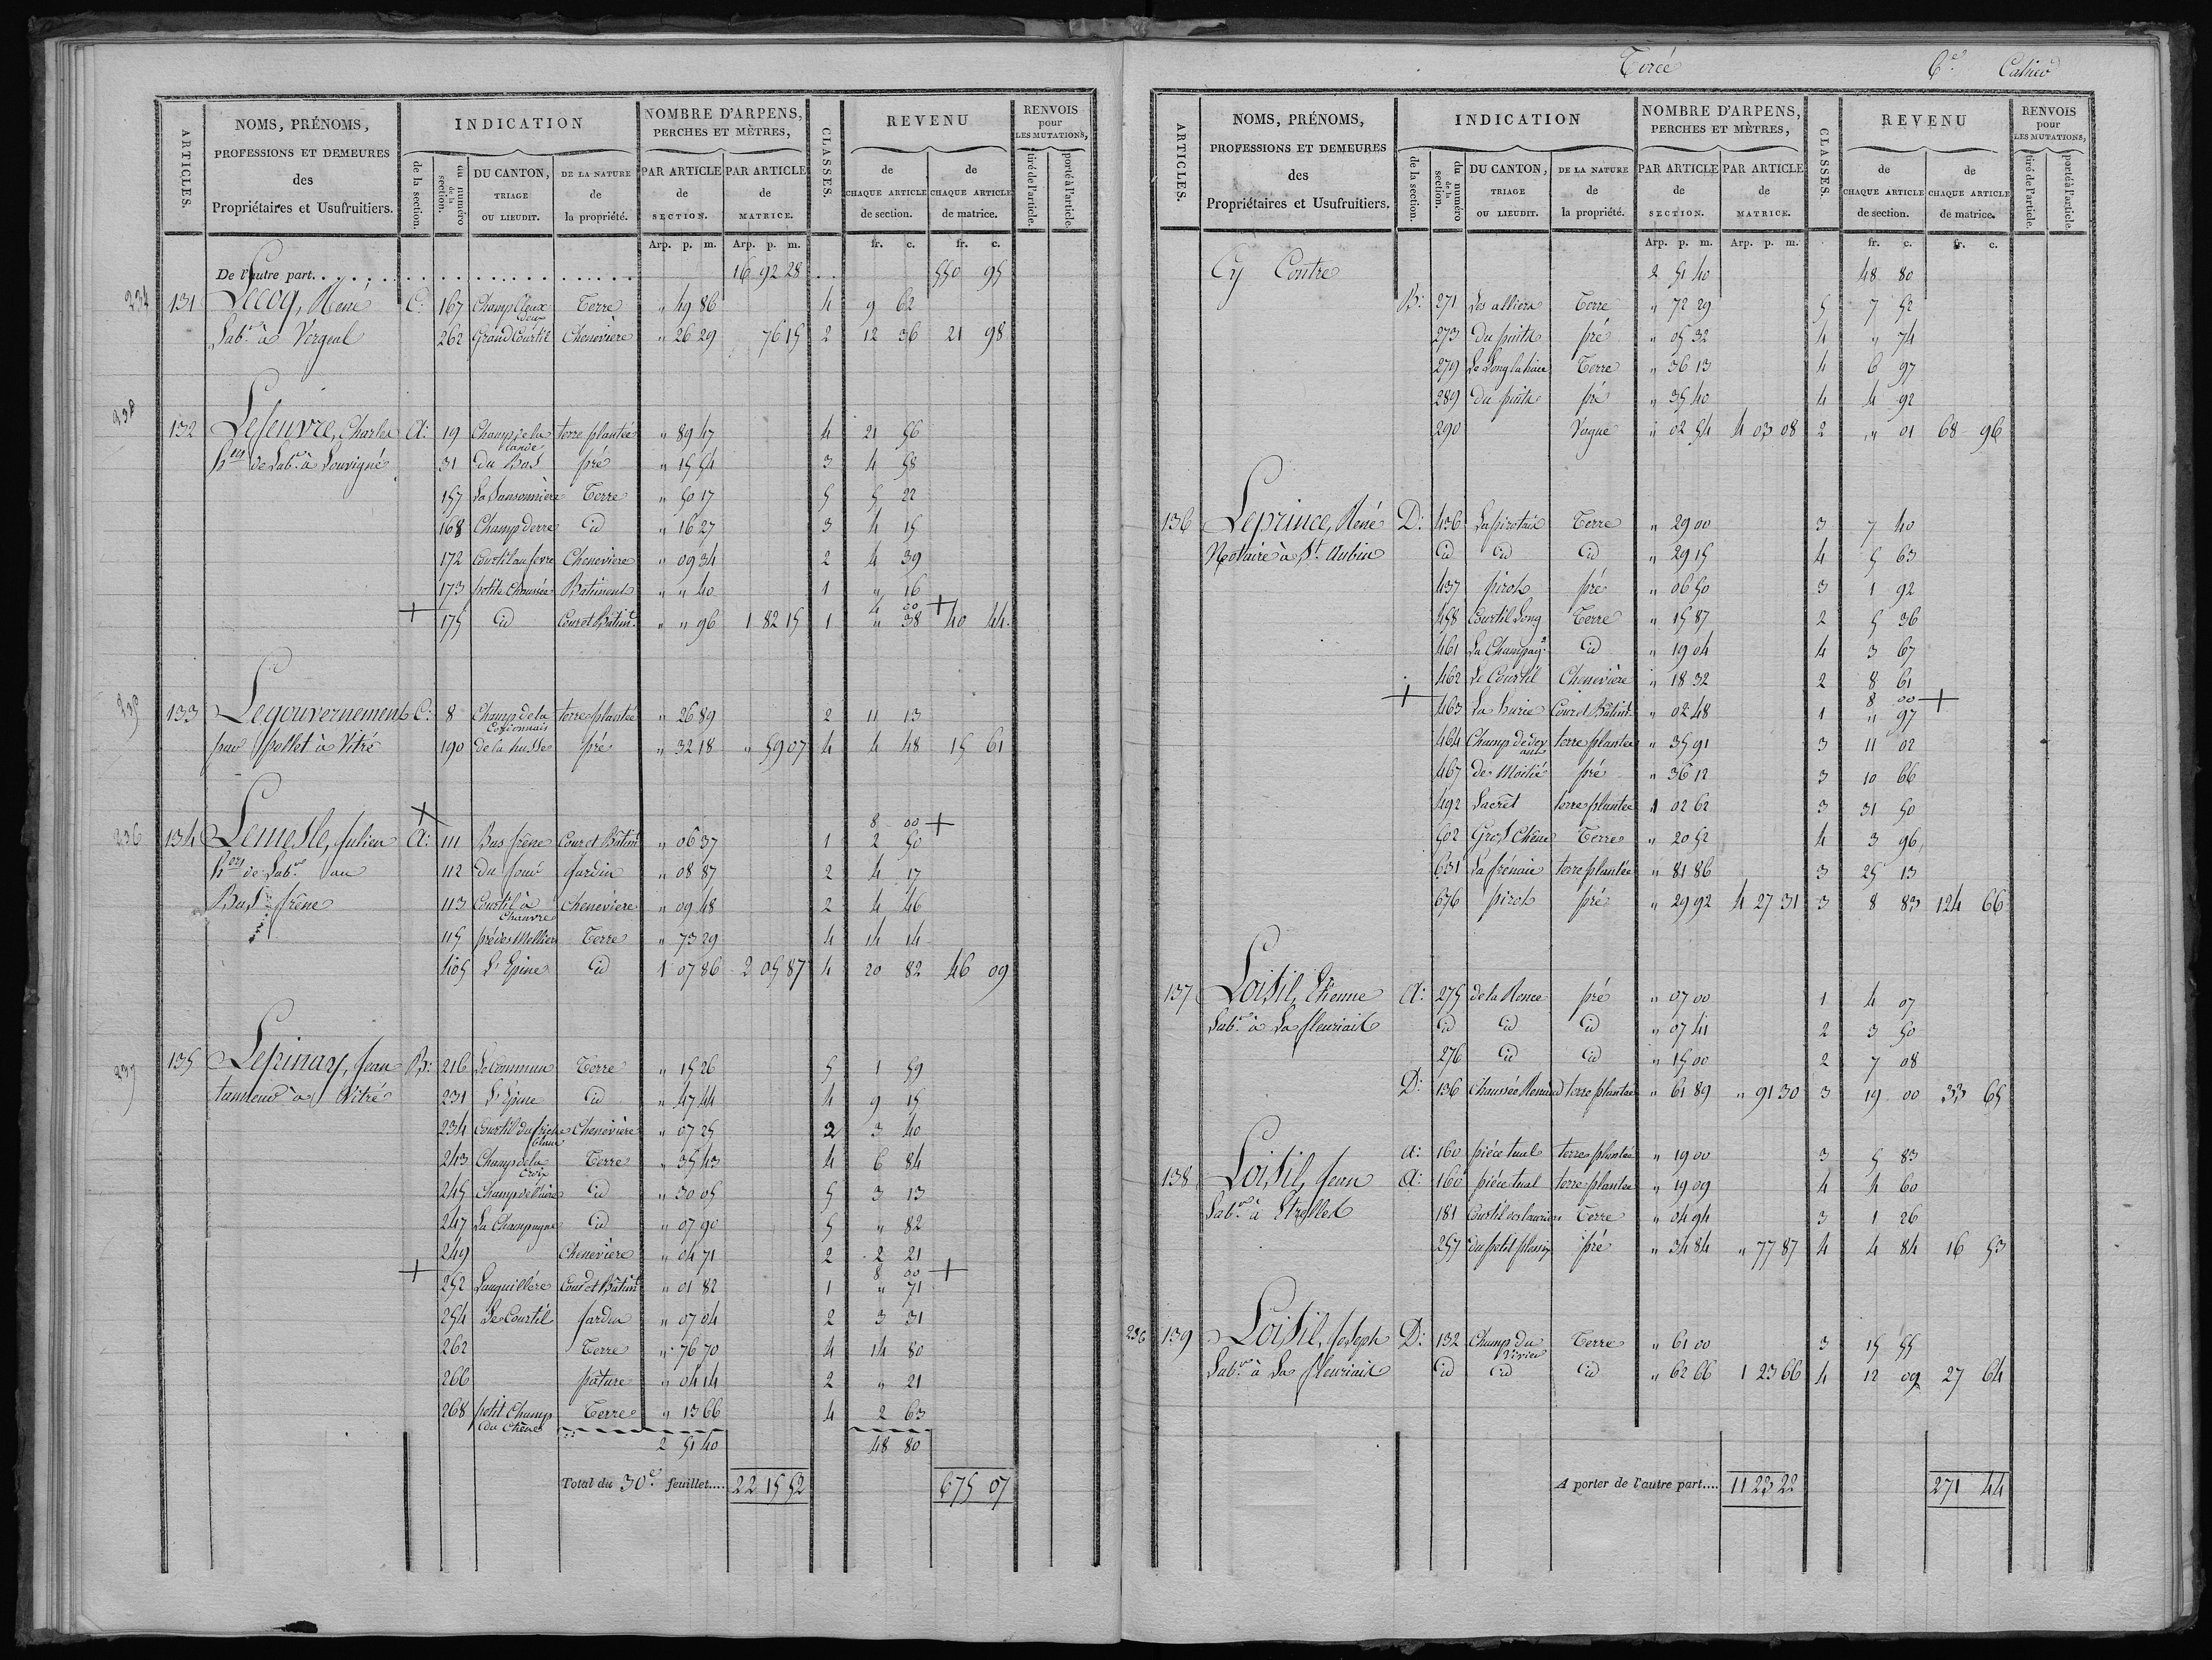 ARTICLES. NOMS, PRÉNOMS, PROFESSIONS ET DEMEURES des Propriétaires et Usufruitiers. INDICATION de la section. du numéro de la section. DU CANTON, TRIAGE OU LIEUDIT. DE LA NATURE de la propriété. NOMBRE D'ARPENS, PERCHES ET MÈTRES, PAR ARTICLE de SECTION. PAR ARTICLE de MATRICE. CLASSES. REVENU de CHAQUE ARTICLE de section. de CHAQUE ARTICLE de matrice. RENVOIS pour LES MUTATIONS, tiré de l'article. porté à l'article.
Arp. p. m. Arp. p. m. fr. c. fr. c.
De l'autre part. 16 92 28 550 95
234 131 Lecoq, René C: 167 Champ Cleux Terre " 49 86 4 9 62
Lab.r à Vergeal 262 Grand Courtil Chenevière " 26 29 76 15 2 12 36 21 98
132 Lefeuvre, Charles A: 19 Champ de la lande terre plantée " 89 47 4 21 56
h.ers de Lab.r à Louvigné 31 du Bas pré " 15 54 3 4 58
157 La Sansonnière Terre " 50 17 5 5 22
168 Champ derre id " 16 27 3 4 15
172 Courtil au fevre Cheneviere " 09 34 2 4 39
173 petite Chaussée Batiment " " 40 1 " 16
4 00 +
+ 175 id Cour et Bâtim.t " " 96 1 82 15 1 " 38 40 44
235 133 Legouvernement C: 8 Champ de la Cordonnais terre plantée " 26 89 2 11 13
par pellet à Vitré 190 de la husse pré " 32 18 " 59 07 4 4 48 15 61
+ 8 00 +
236 134 Lemesle, Julien A: 111 Bas frêne Cour et Bâtim.t " 06 37 1 2 50
h.ers de Lab.r au 112 du four Jardin " 08 87 2 4 17
Bas frêne 113 Courtil à Chanvre Cheneviere " 09 48 2 4 46
115 pré des Melliers Terre " 73 29 4 14 14
405 L'Epine id 1 07 86 2 05 87 4 20 82 46 09
237 135 Lepinay, Jean B: 216 Le Commun Terre " 15 26 5 1 59
tanneur à Vitré 231 L'Epine id " 47 44 4 9 15
234 Courtil du friche blanc Chenevière " 07 25 2 3 40
243 Champ de la Croix Terre " 35 43 4 6 84
245 Champ de l'aire id " 30 05 5 3 13
247 La Champagne id " 07 90 5 " 82
249 Chenevière " 04 71 2 2 21
8 00 +
+ 252 Lanquillére Cour et Bâtim.t " 01 82 1 " 71
254 Le Courtil Jardin " 07 04 2 3 31
262 Terre " 76 70 4 14 80
266 pâture " 04 14 2 " 21
268 petit Champ du Chêne Terre " 13 66 4 2 63
2 51 40 48 80
Total du 30.e feuillet.... 22 15 52 675 07
Torcé 6.e Cahier
ARTICLES. NOMS, PRÉNOMS, PROFESSIONS ET DEMEURES des Propriétaires et Usufruitiers. INDICATION de la section. du numéro de la section. DU CANTON, TRIAGE OU LIEUDIT. DE LA NATURE de la propriété. NOMBRE D'ARPENS, PERCHES ET MÈTRES, PAR ARTICLE de SECTION. PAR ARTICLE de MATRICE. CLASSES. REVENU de CHAQUE ARTICLE de section. de CHAQUE ARTICLE de matrice. RENVOIS pour LES MUTATIONS, tiré de l'article. porté à l'article.
Arp. p. m. Arp. p. m. fr. c. fr. c.
Cy Contre 2 51 40 48 80
B: 271 Les alliers Terre " 72 29 5 7 52
273 du puits pré " 05 32 4 " 74
279 Le Long la haie Terre " 36 13 4 6 97
289 du puits pré " 35 40 4 4 92
290 Vague " 02 54 4 03 08 2 " 01 68 96
136 Leprince, René D: 436 La pirotais Terre " 29 00 3 7 40
Notaire à St. Aubin id id id " 29 15 4 5 63
437 pirot pré " 06 50 3 1 92
458 Courtil Long Terre " 15 87 2 5 36
461 La Champag.e id " 19 04 4 3 67
462 Le Courtil Chenevière " 18 32 2 8 61
8 00 +
+ 463 La hurie Cour et Bâtim.t " 02 48 1 " 97
464 Champ de devant terre plantée " 35 91 3 11 02
467 de Moitié pré " 36 12 3 10 66
492 Lacrêt terre plantée 1 02 62 3 31 50
502 Gros Chêne Terre " 20 52 4 3 96
631 La frénaie terre plantée " 81 86 3 25 13
676 pirot pré " 29 92 4 27 31 3 8 83 124 66
137 Loisil, Etienne A: 275 de la Ronce pré " 07 00 1 4 07
Lab.r à La fleuriais id id id " 07 41 2 3 50
276 id id " 15 00 2 7 08
D: 136 Chaussée Renaud terre plantée " 61 89 " 91 30 3 19 00 33 65
a: 160 piéce tual terre plantée " 19 00 3 5 83
138 Loisil, Jean A: 160 piéce tual terre plantée " 19 09 4 4 60
Lab.r à Etrelles 181 Courtil des lauriers Terre " 04 94 3 1 26
257 du petit plessis pré " 34 84 " 77 87 4 4 84 16 53
236 139 Loisil, Joseph D: 132 Champ du Vivier Terre " 61 00 3 15 55
Lab.r à La fleuriais id id id " 62 66 1 23 66 4 12 09 27 64
A porter de l'autre part.... 11 23 22 271 44